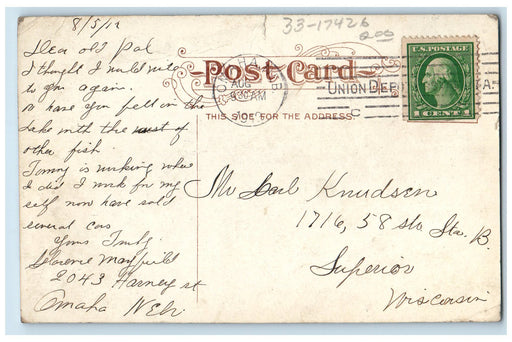 8/5/12
33-17426
Dear old Pal
I thought I would write
to you again.
have you fell in the
Lake with the rest of
other fish.
Tommy is working where
I did I work for my
self now have sold
several cars
Yours Truly
Florence Mayfield
2043 Harney st
Omaha Neb
Post Card
THIS SIDE FOR THE ADDRESS
OMAHA
AUG
930AM
UNION DEP
U.S. POSTAGE
1 CENT 1
Mr Carl Knudsen
1716, 58 str Sta. B.
Superior
Wisconsin